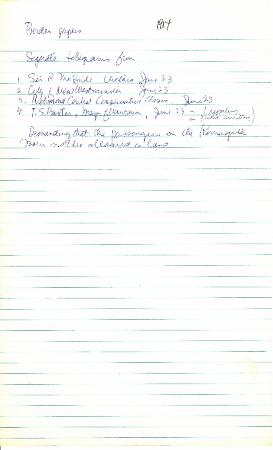 Borden papers 1914
Separate telegrams from
1. Sir R McBride Victoria June 23
2. City of New Westminster June 23
3. Central Conservative Assn. June 23
4. T.S. Baxter, Mayor of Vancouver, June 23 -
Demanding that the passengers on the Komagata
Maru not be allowed to land